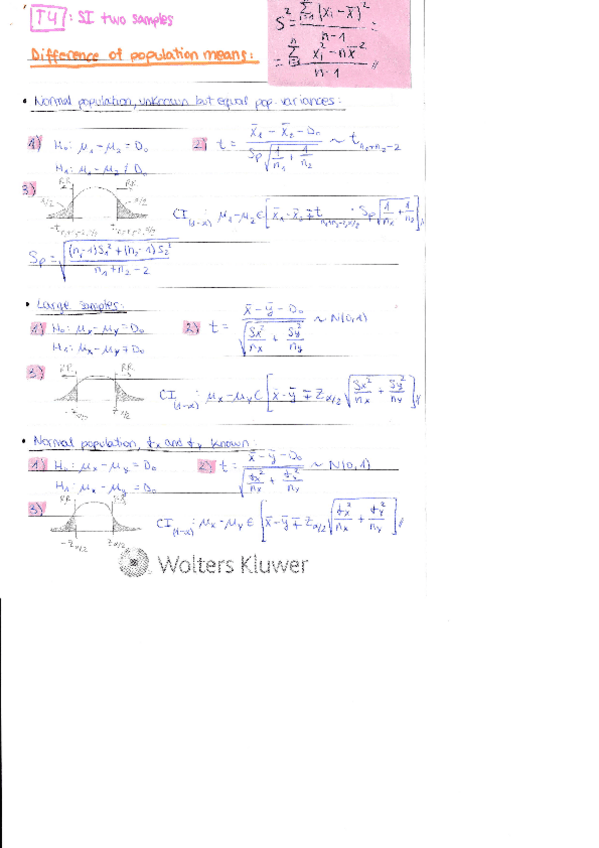 T4: SI two samples
S² = Σ(xi - x̄)² / n-1 =
= Σ xi² - nx̄² / n-1 //
Difference of population means:
• Normal population, unknown but equal pop. variances:
1) H₀: μ₁ - μ₂ = D₀
H₁: μ₁ - μ₂ ≠ D₀
2) t = x̄₁ - x̄₂ - D₀ / Sp√(1/n₁ + 1/n₂) ~ t n₁+n₂-2
3) RR RR
α/2 α/2
-t n₁+n₂-2, α/2 t n₁+n₂-2, α/2
CI(1-α): μ₁ - μ₂ ∈ [x̄₁ - x̄₂ ∓ t n₁+n₂-2, α/2 · Sp√(1/n₁ + 1/n₂)]//
Sp = √((n₁-1)S₁² + (n₂-1)S₂² / n₁+n₂-2)
• Large samples:
1) H₀: μx - μy = D₀
H₁: μx - μy ≠ D₀
2) t = x̄ - ȳ - D₀ / √(Sx²/nx + Sy²/ny) ~ N(0,1)
3) RR RR
-zα/2 zα/2
CI(1-α): μx - μy ∈ [x̄ - ȳ ∓ zα/2 √(Sx²/nx + Sy²/ny)]//
• Normal population, σx and σy known:
1) H₀: μx - μy = D₀
H₁: μx - μy = D₀
2) t = x̄ - ȳ - D₀ / √(σx²/nx + σy²/ny) ~ N(0,1)
3) RR RR
-zα/2 zα/2
CI(1-α): μx - μy ∈ [x̄ - ȳ ∓ zα/2 √(σx²/nx + σy²/ny)]//
Wolters Kluwer